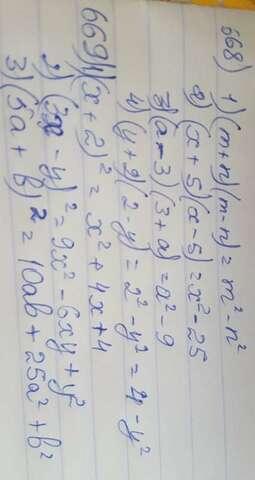 668) 1) (m+n)(m-n) = m² - n²
2) (x + 5)(x - 5) = x² - 25
3) (a - 3)(3 + a) = a² - 9
4) (y + 2)(2 - y) = 2² - y² = 4 - y²
669) 1) (x + 2)² = x² + 4x + 4
2) (3x - y)² = 9x² - 6xy + y²
3) (5a + b)² = 10ab + 25a² + b²